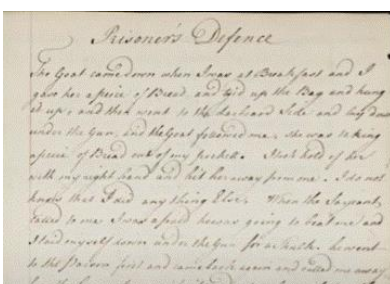 Prisoner's Defence
The Goat came down when I was at Breakfast and I
gave her a peice of Bread and tied up the Bag and hung
it up, and then went to the Starboard Side and lay down
under the Gun, and the Goat followed me, she was taking
a peice of Bread out of my pocket. I took hold of her
with my right hand and hit her away from me. I do not
know that I did any thing Else. When the Serjeant
called to me I was afraid he was going to beat me and
I laid myself down under the Gun for a while. he went
to the first and came back again and called me away